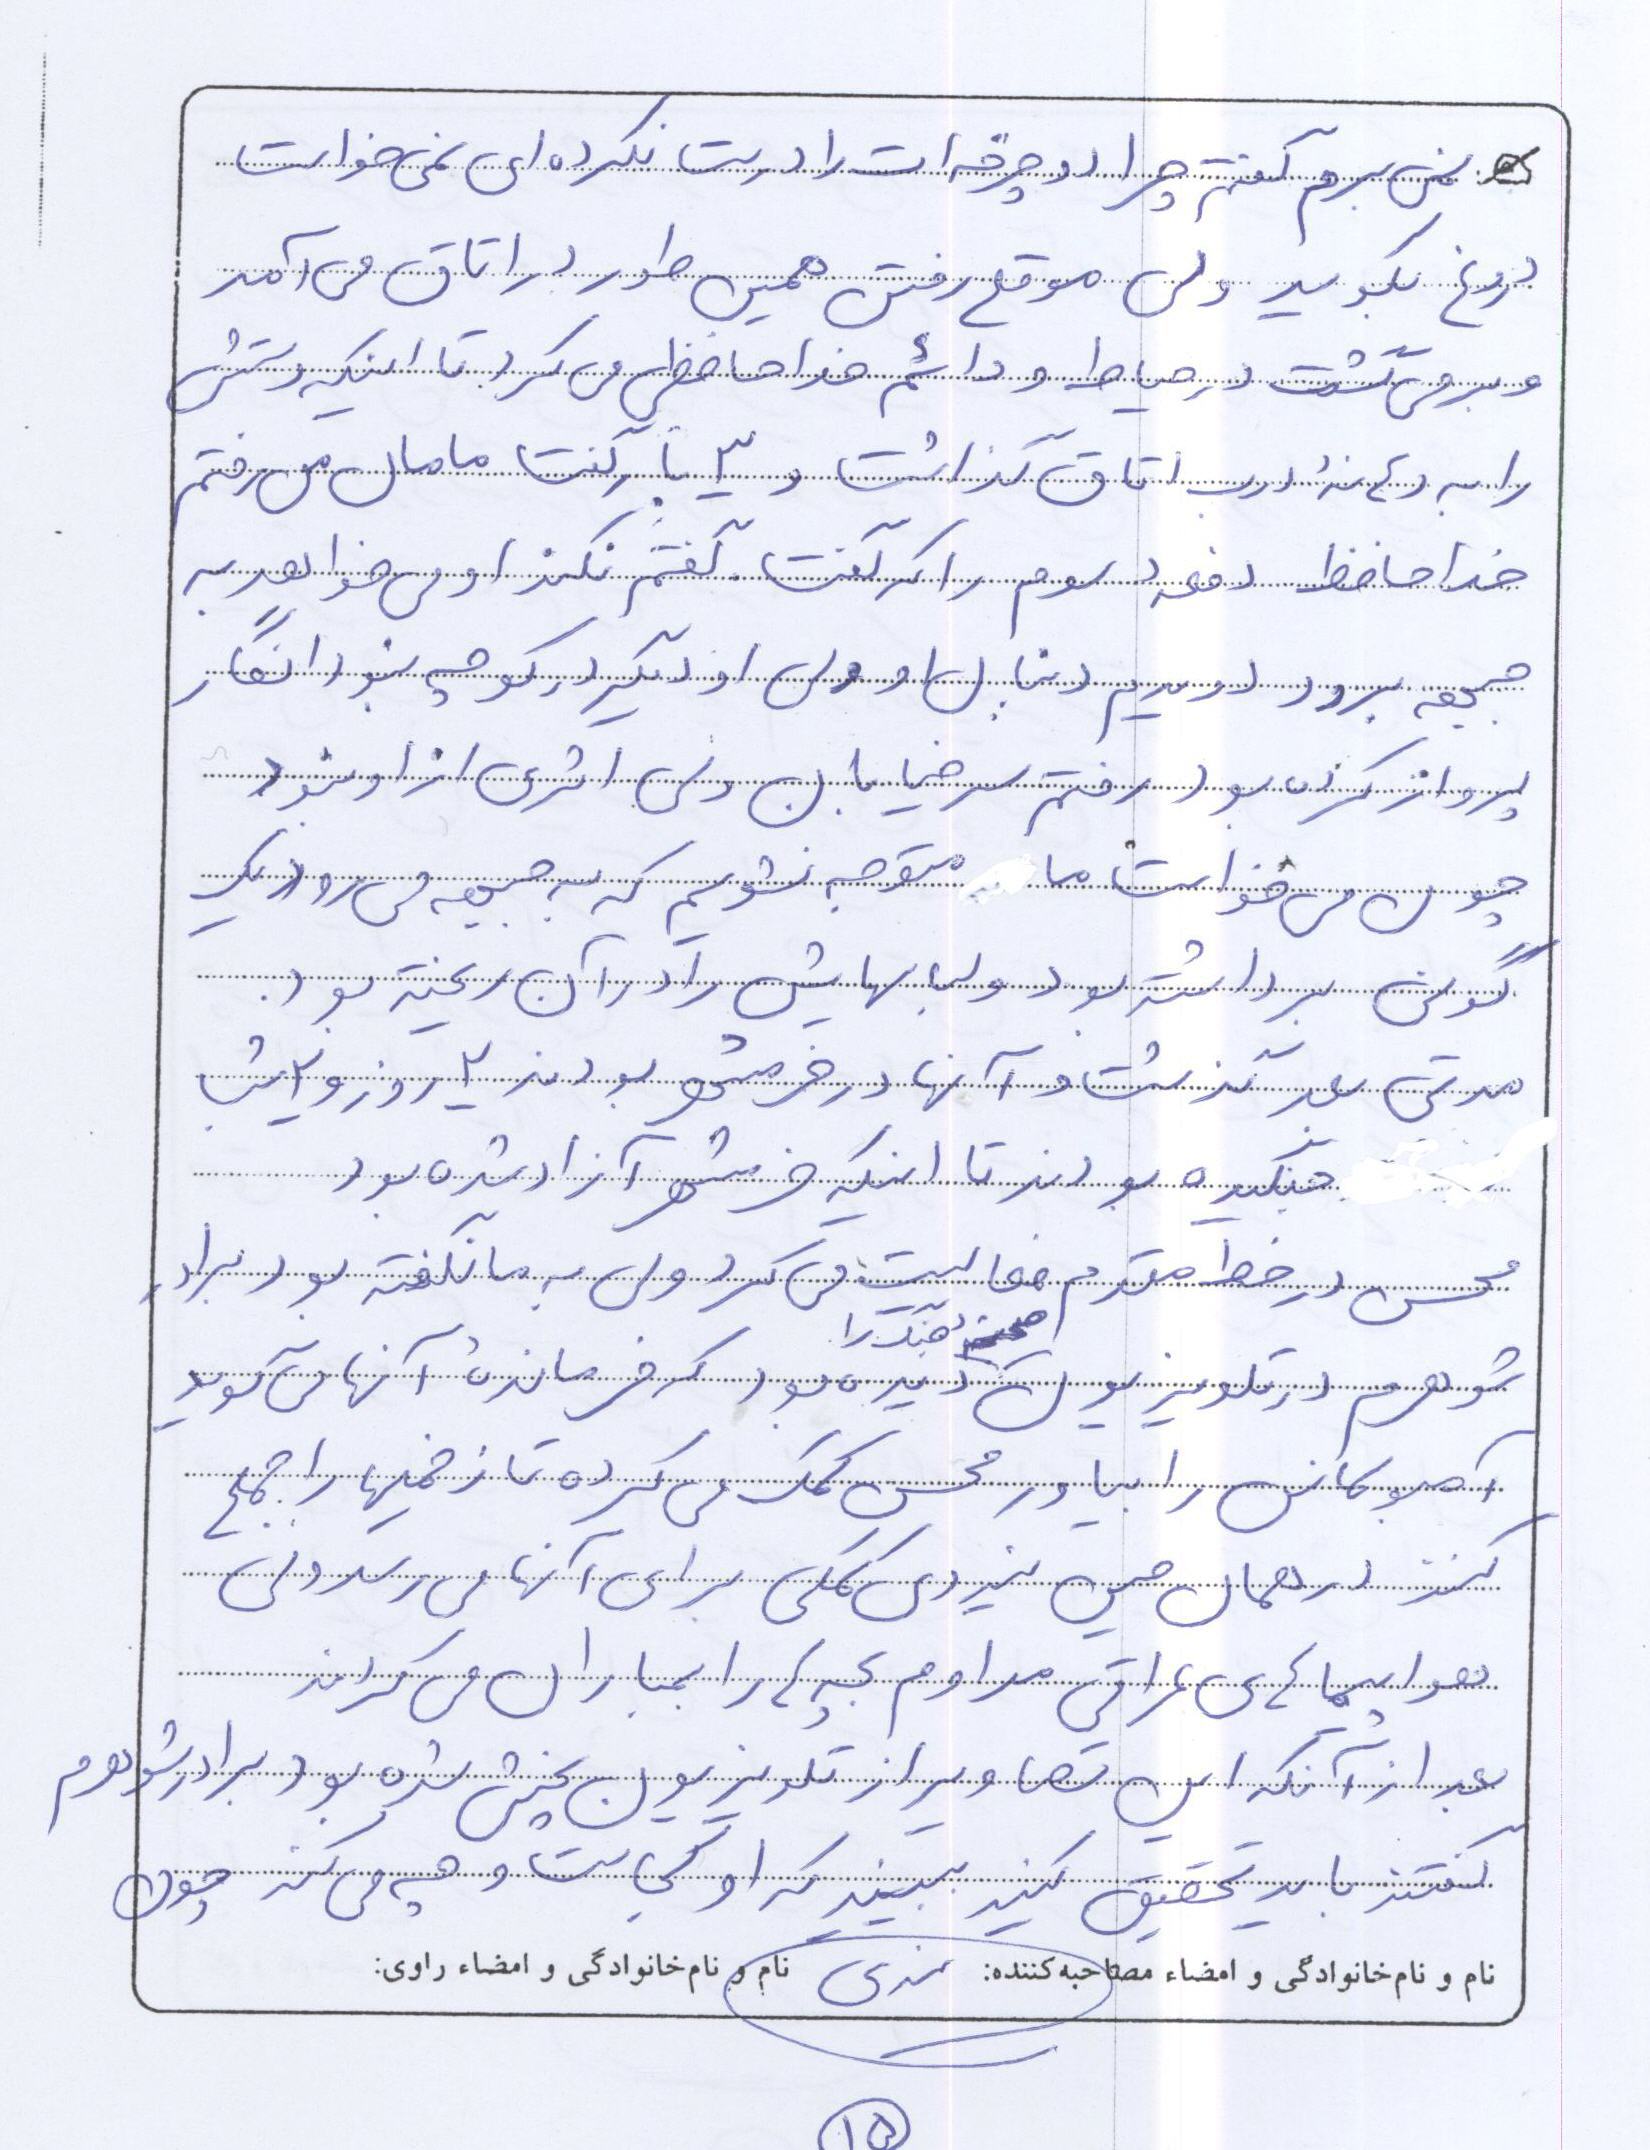 نمی‌برم گفتم چرا دوچرخه‌ات را درست نکرده‌ای نمی‌خواست
دروغ بگوید ولی موقع رفتن همین طور در اتاق می‌آمد
و برمی‌گشت در حیاط و دائم خداحافظی می‌کرد تا اینکه دستش
را به دهنهٔ درب اتاق گذاشت و ۳ بار گفت مامان من رفتم
خداحافظ دفعه سوم را که گفت. گفتم نکند او می‌خواهد به
جبهه برود دویدیم دنبال او ولی او دیگر در کوچه نبود انگار
پرواز کرده بود رفتم سر خیابان ولی اثری از او نبود
چون می‌خواست ما متوجه نشویم که به جبهه می‌رود یک
گونی برداشته بود و لباسهایش را در آن ریخته بود.
مدتی بعد گذشت و آنها در خرمشهر بودند ۲ روز و ۲ شب
جنگیده بودند تا اینکه خرمشهر آزاد شده بود
محسن در خط مقدم فعالیت می‌کرد ولی به ما نگفته بود برادر
صحنه جنگ را
شوهرم در تلویزیون دیده بود که فرماندهٔ آنها می‌گوید
آمبولانس را بیاور محسن کمک می‌کرده تا زخمیها را جمع
کنند در همان حین نیروی کمکی برای آنها می‌رسد ولی
هواپیماهای عراقی مداوم بچه‌ها را بمباران می‌کردند
بعد از آنکه این تصاویر از تلویزیون پخش شده بود برادر شوهرم
گفتند باید تحقیق کنید ببینید که او کجاست و چه می‌کند چون
نام و نام‌خانوادگی و امضاء مصاحبه‌کننده: نام و نام‌خانوادگی و امضاء راوی:
۱۵